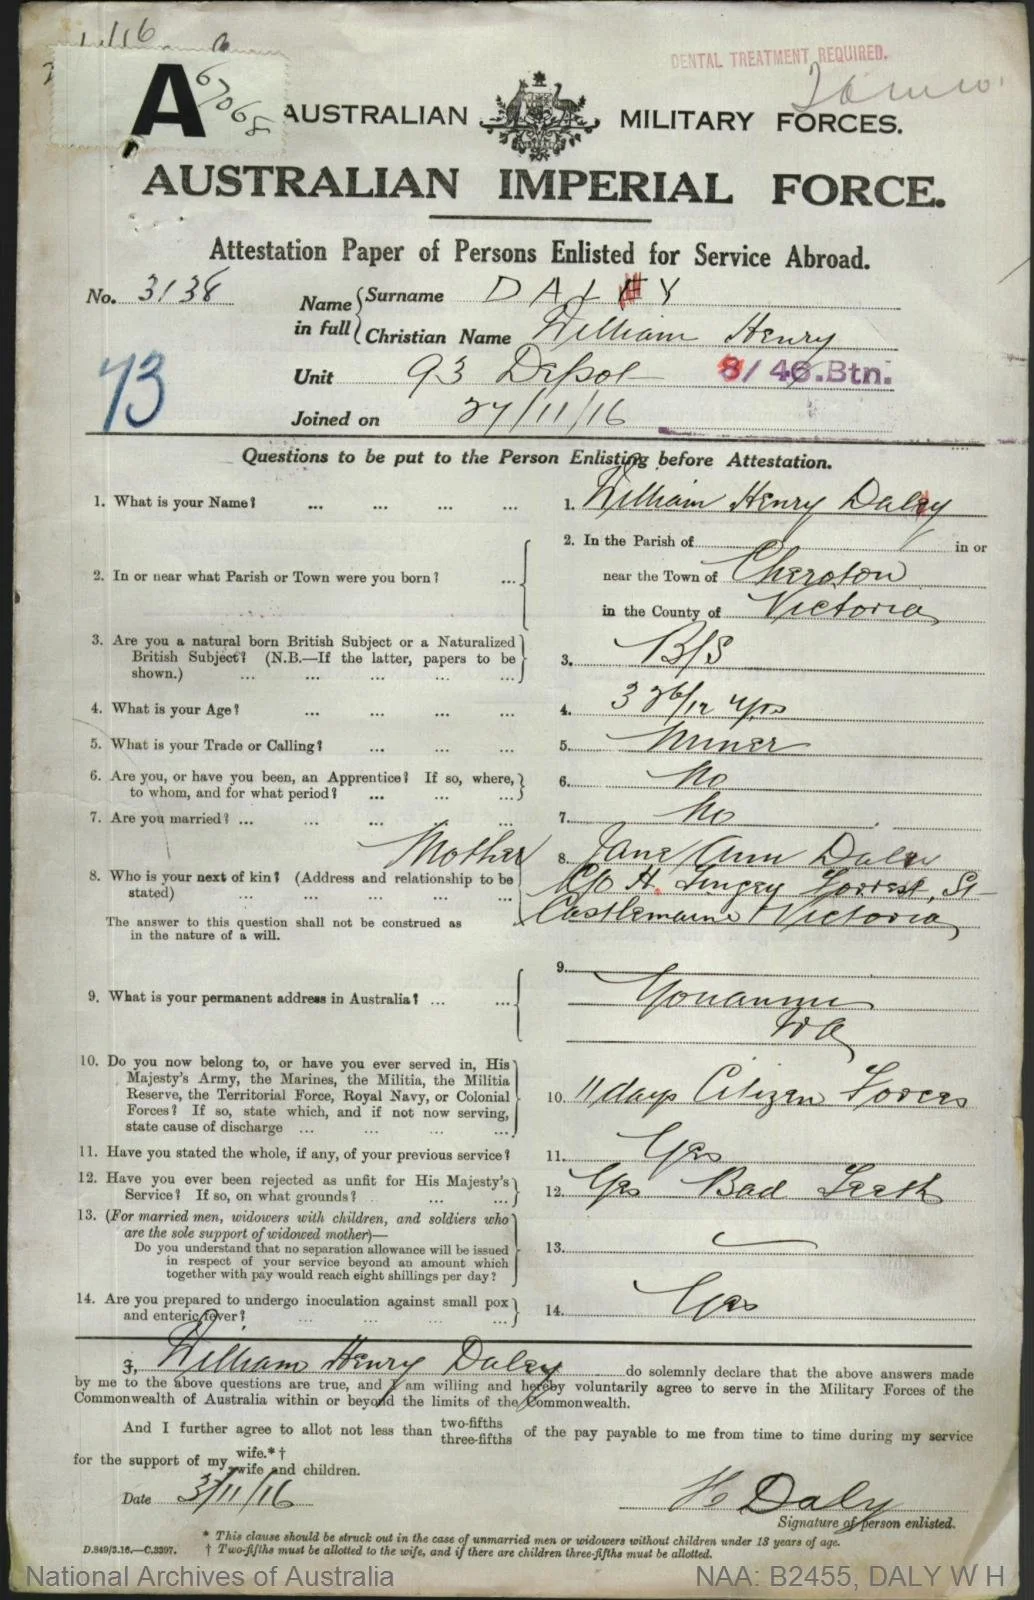 1/16
A 67068
DENTAL TREATMENT REQUIRED.
AUSTRALIAN MILITARY FORCES.
AUSTRALIAN IMPERIAL FORCE.
Attestation Paper of Persons Enlisted for Service Abroad.
No. 3138
Name in full { Surname DALEY
Christian Name William Henry
Unit 93 Depot 8/46.Btn.
73
Joined on 27/11/16
Questions to be put to the Person Enlisting before Attestation.
1. What is your Name? ... ... ... ... 1. William Henry Daley
2. In or near what Parish or Town were you born? ... 2. In the Parish of in or
near the Town of
in the County of Victoria
3. Are you a natural born British Subject or a Naturalized
British Subject? (N.B.—If the latter, papers to be
shown.) ... ... ... ... ... 3. B/S
4. What is your Age? ... ... ... 4. 3 26/12 yrs
5. What is your Trade or Calling? ... ... ... 5. Miner
6. Are you, or have you been, an Apprentice? If so, where,
to whom, and for what period? ... ... ... 6. No
7. Are you married? ... ... ... ... 7. No
8. Who is your next of kin? (Address and relationship to be
stated) ... ... ... ... Mother 8. Jane Ann Daley
C/o H. Forrest St
Castlemaine Victoria
The answer to this question shall not be construed as
in the nature of a will.
9. What is your permanent address in Australia? ... ... 9. Youanmi
WA
10. Do you now belong to, or have you ever served in, His
Majesty's Army, the Marines, the Militia, the Militia
Reserve, the Territorial Force, Royal Navy, or Colonial
Forces? If so, state which, and if not now serving,
state cause of discharge ... ... ... ... 10. 11 days Citizen Forces
11. Have you stated the whole, if any, of your previous service? 11. Yes
12. Have you ever been rejected as unfit for His Majesty's
Service? If so, on what grounds? ... ... 12. Yes Bad Teeth
13. (For married men, widowers with children, and soldiers who
are the sole support of widowed mother)—
Do you understand that no separation allowance will be issued
in respect of your service beyond an amount which
together with pay would reach eight shillings per day? 13.
14. Are you prepared to undergo inoculation against small pox
and enteric fever? ... ... ... ... 14. Yes
I, William Henry Daley do solemnly declare that the above answers made
by me to the above questions are true, and I am willing and hereby voluntarily agree to serve in the Military Forces of the
Commonwealth of Australia within or beyond the limits of the Commonwealth.
And I further agree to allot not less than two-fifths three-fifths of the pay payable to me from time to time during my service
for the support of my wife.*† wife and children.
Date 3/11/16 H Daly
Signature of person enlisted.
* This clause should be struck out in the case of unmarried men or widowers without children under 18 years of age.
D.849/3.16.—C.3397. † Two-fifths must be allotted to the wife, and if there are children three-fifths must be allotted.
National Archives of Australia NAA: B2455, DALY W H